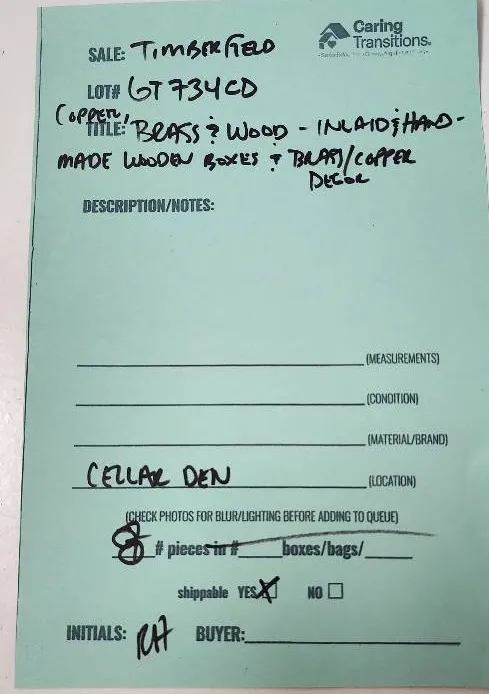 Caring
Transitions.
SALE: TIMBERFIELD
LOT# GT734CD
COPPER,
TITLE: BRASS & WOOD - INLAID & HAND-
MADE WOODEN BOXES & BRASS/COPPER
DECOR
DESCRIPTION/NOTES:
(MEASUREMENTS)
(CONDITION)
(MATERIAL/BRAND)
CELLAR DEN (LOCATION)
(CHECK PHOTOS FOR BLUR/LIGHTING BEFORE ADDING TO QUEUE)
8 # pieces in # boxes/bags/
shippable YES X NO
INITIALS: BUYER: